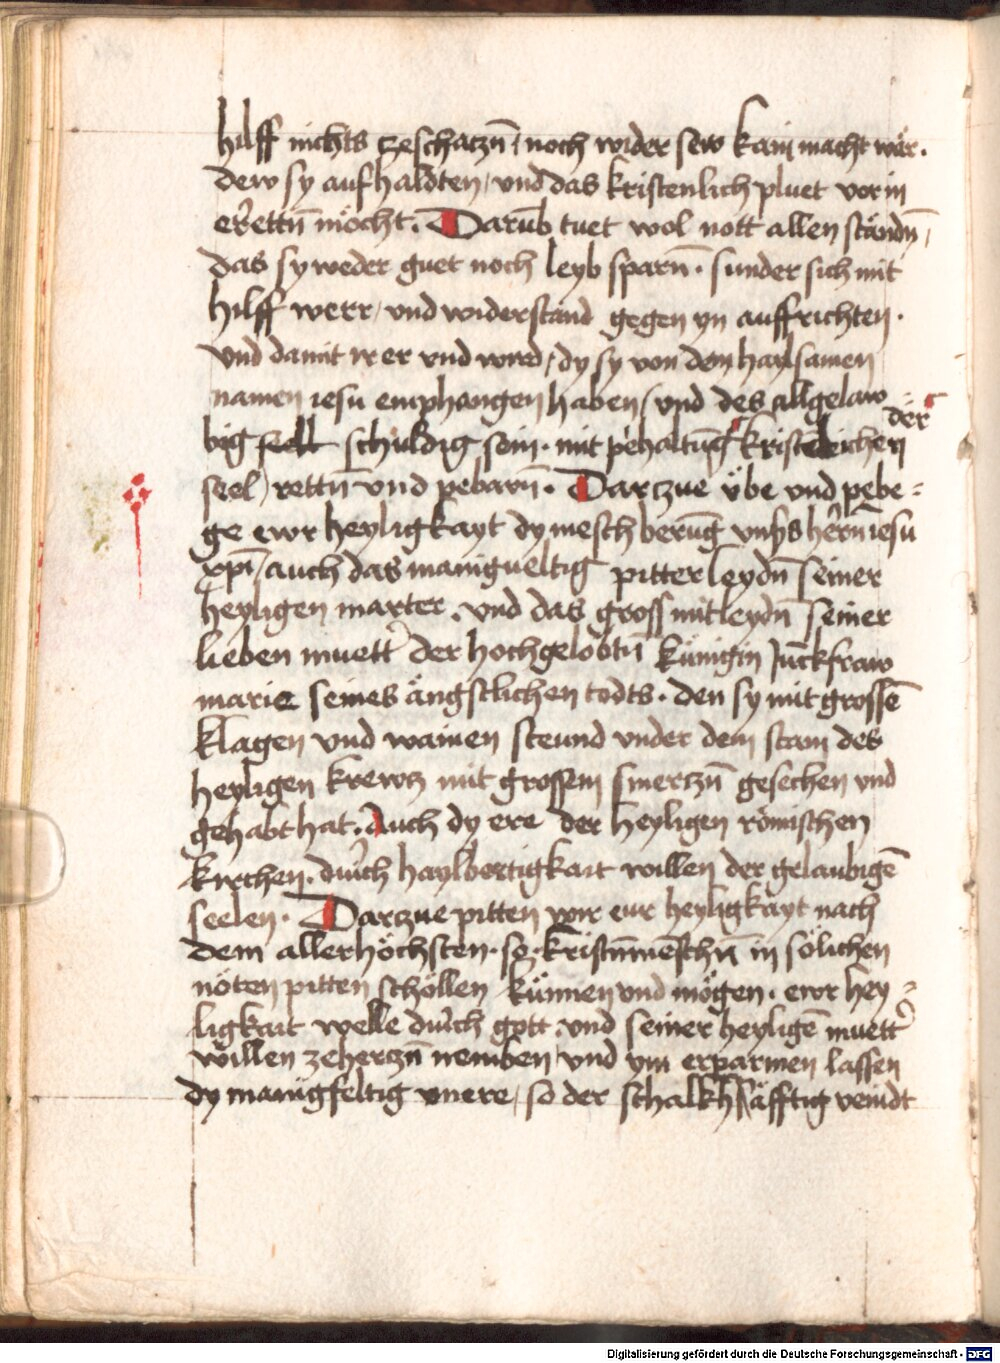 hilff nichts geschatzn̄ / noch wider sew kain macht wär.
dew sy aufhaldten / vnd das kristenlich pluet vor in
erettn̄ möcht. Darub tuet wol nott allen ständn̄ /
das sy weder guet noch leyb sparn̄ . sunder sich mit
hilff werr / vnd widerstand gegen yn auffrichten .
vnd damit ir er vnd wird / dy sy von dem haylsamen
namen iesu emphangen haben / vnd des allgelaw
big schuldig sein . mit pehaltūg der kristēlichen
seel / rettn̄ vnd pebarn̄ . Darzue vbe vnd pebe =
ge ewr heyligkayt dy mēschberūg vnsers hern̄ iesu
xpī / auch das manigueltig pitter leydn̄ seiner
heyligen marter . vnd das gross mitleydn̄ seiner
lieben muett der hochgelobtn̄ künigin Jūckfraw
marie seines ängstlichen todts . den sy mit grossē
klagen vnd wainen steund vnder dem stam des
heyligen krewtz mit grossem smerczn̄ gesechen vnd
gehabt hat . Auch dy ere der heyligen römischen
kirchen . durch haylbertigkait willen der gelaubigē
seelen . Darzue pitten wir eur heyligkayt nach
dem allerhöchsten . so kristn̄mēschn̄ in sölichen
nöten pitten schöllen / künnen vnd mögen . ewr hey =
ligkait welle durch gott vnd seiner heyligē muett
willen zeherczn̄ nemben / vnd ym erparmen lassen
dy manigfeltig vnere / so der schalkhäfftig veindt
Digitalisierung gefördert durch die Deutsche Forschungsgemeinschaft - DFG